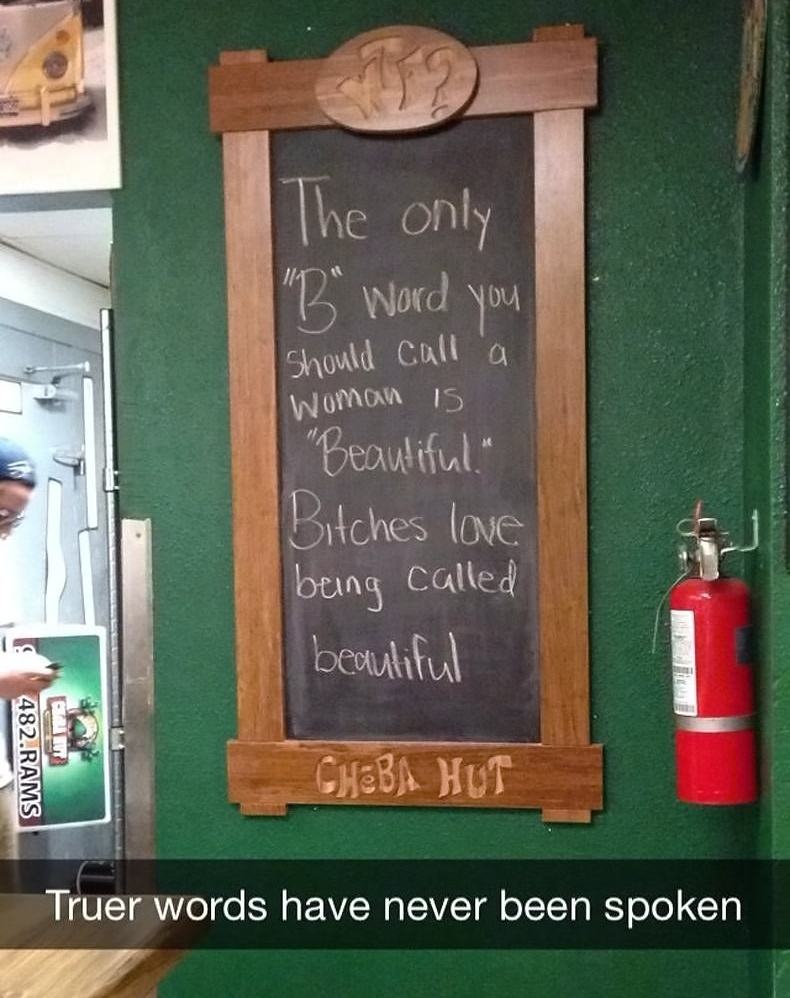 WTF?
The only
"B" word you
should call a
woman is
"Beautiful."
Bitches love
being called
beautiful
CHEBA HUT
482.RAMS
Truer words have never been spoken